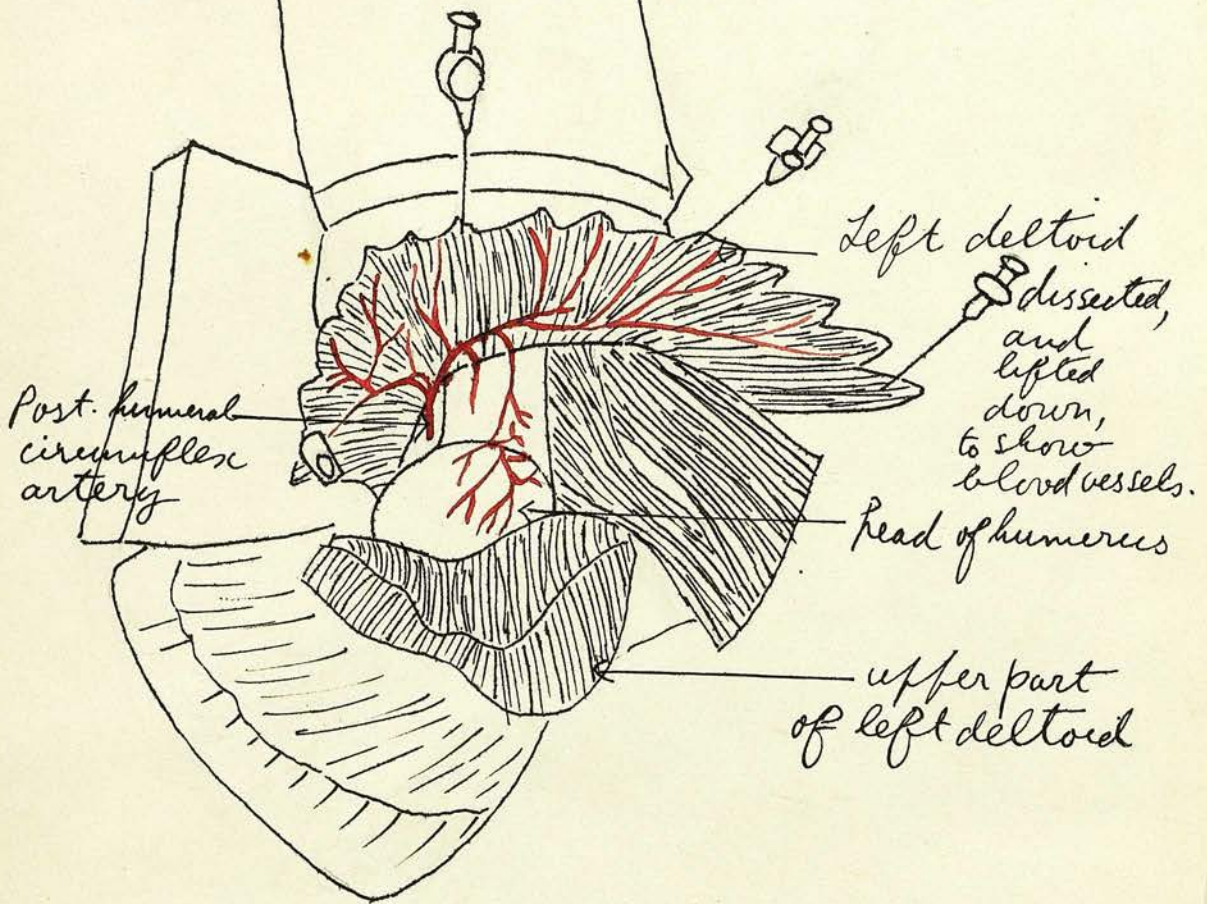 Left deltoid
dissected,
and
lifted
down,
to show
blood vessels.
Post. humeral
circumflex
artery
head of humerus
upper part
of left deltoid